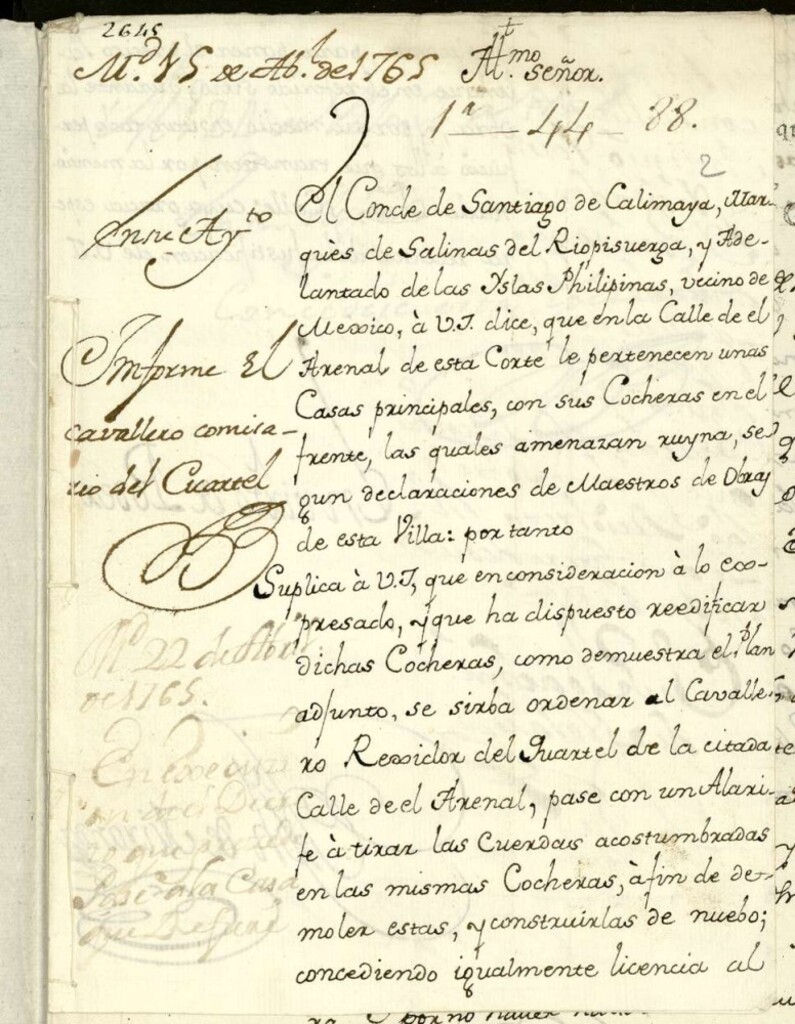 2645
M.d 15 de Ab.l de 1765
Yll.mo Señor.
1a — 44 — 88.
2
En su Ay.to
Informe El
cavallero comisa-
rio del Cuartel
El Conde de Santiago de Calimaya, Mar-
quès de Salinas del Riopisuerga, y Ade-
lantado de las Yslas Philipinas, vecino de
Mexico, à V.I. dice, que en la Calle de el
Arenal de esta Corte le pertenecen unas
Casas principales, con sus Cocheras en el
frente, las quales amenazan ruyna, se
gun declaraciones de Maestros de Obras
de esta Villa: por tanto
Suplica à V.I, que en consideracion à lo ex-
presado, y que ha dispuesto reedificar
dichas Cocheras, como demuestra el Plan
adjunto, se sirba ordenar al Cavalle-
ro Rexidor del Quartel de la citada
Calle de el Arenal, pase con un Alari-
fe à tirar las Cuerdas acostumbradas
en las mismas Cocheras, à fin de de-
moler estas, y construirlas de nuebo;
concediendo igualmente licencia al
M.d 22 de Abril
de 1765.
En execuzi
on del Decre
to que
Pasè a la Casa
que Refiere